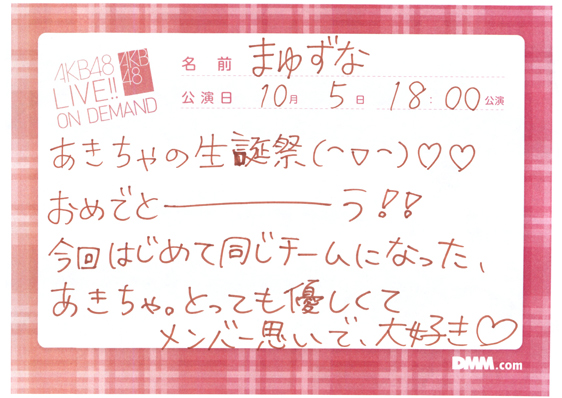 AKB48
LIVE!!
ON DEMAND
AKB
48
名前 まゅずな
公演日 10月 5日 18:00公演
あきちゃの生誕祭(^▽^)♡♡
おめでとーーーーーう!!
今回はじめて同じチームになった、
あきちゃ。とっても優しくて
メンバー思いで、大好き♡
DMM.com